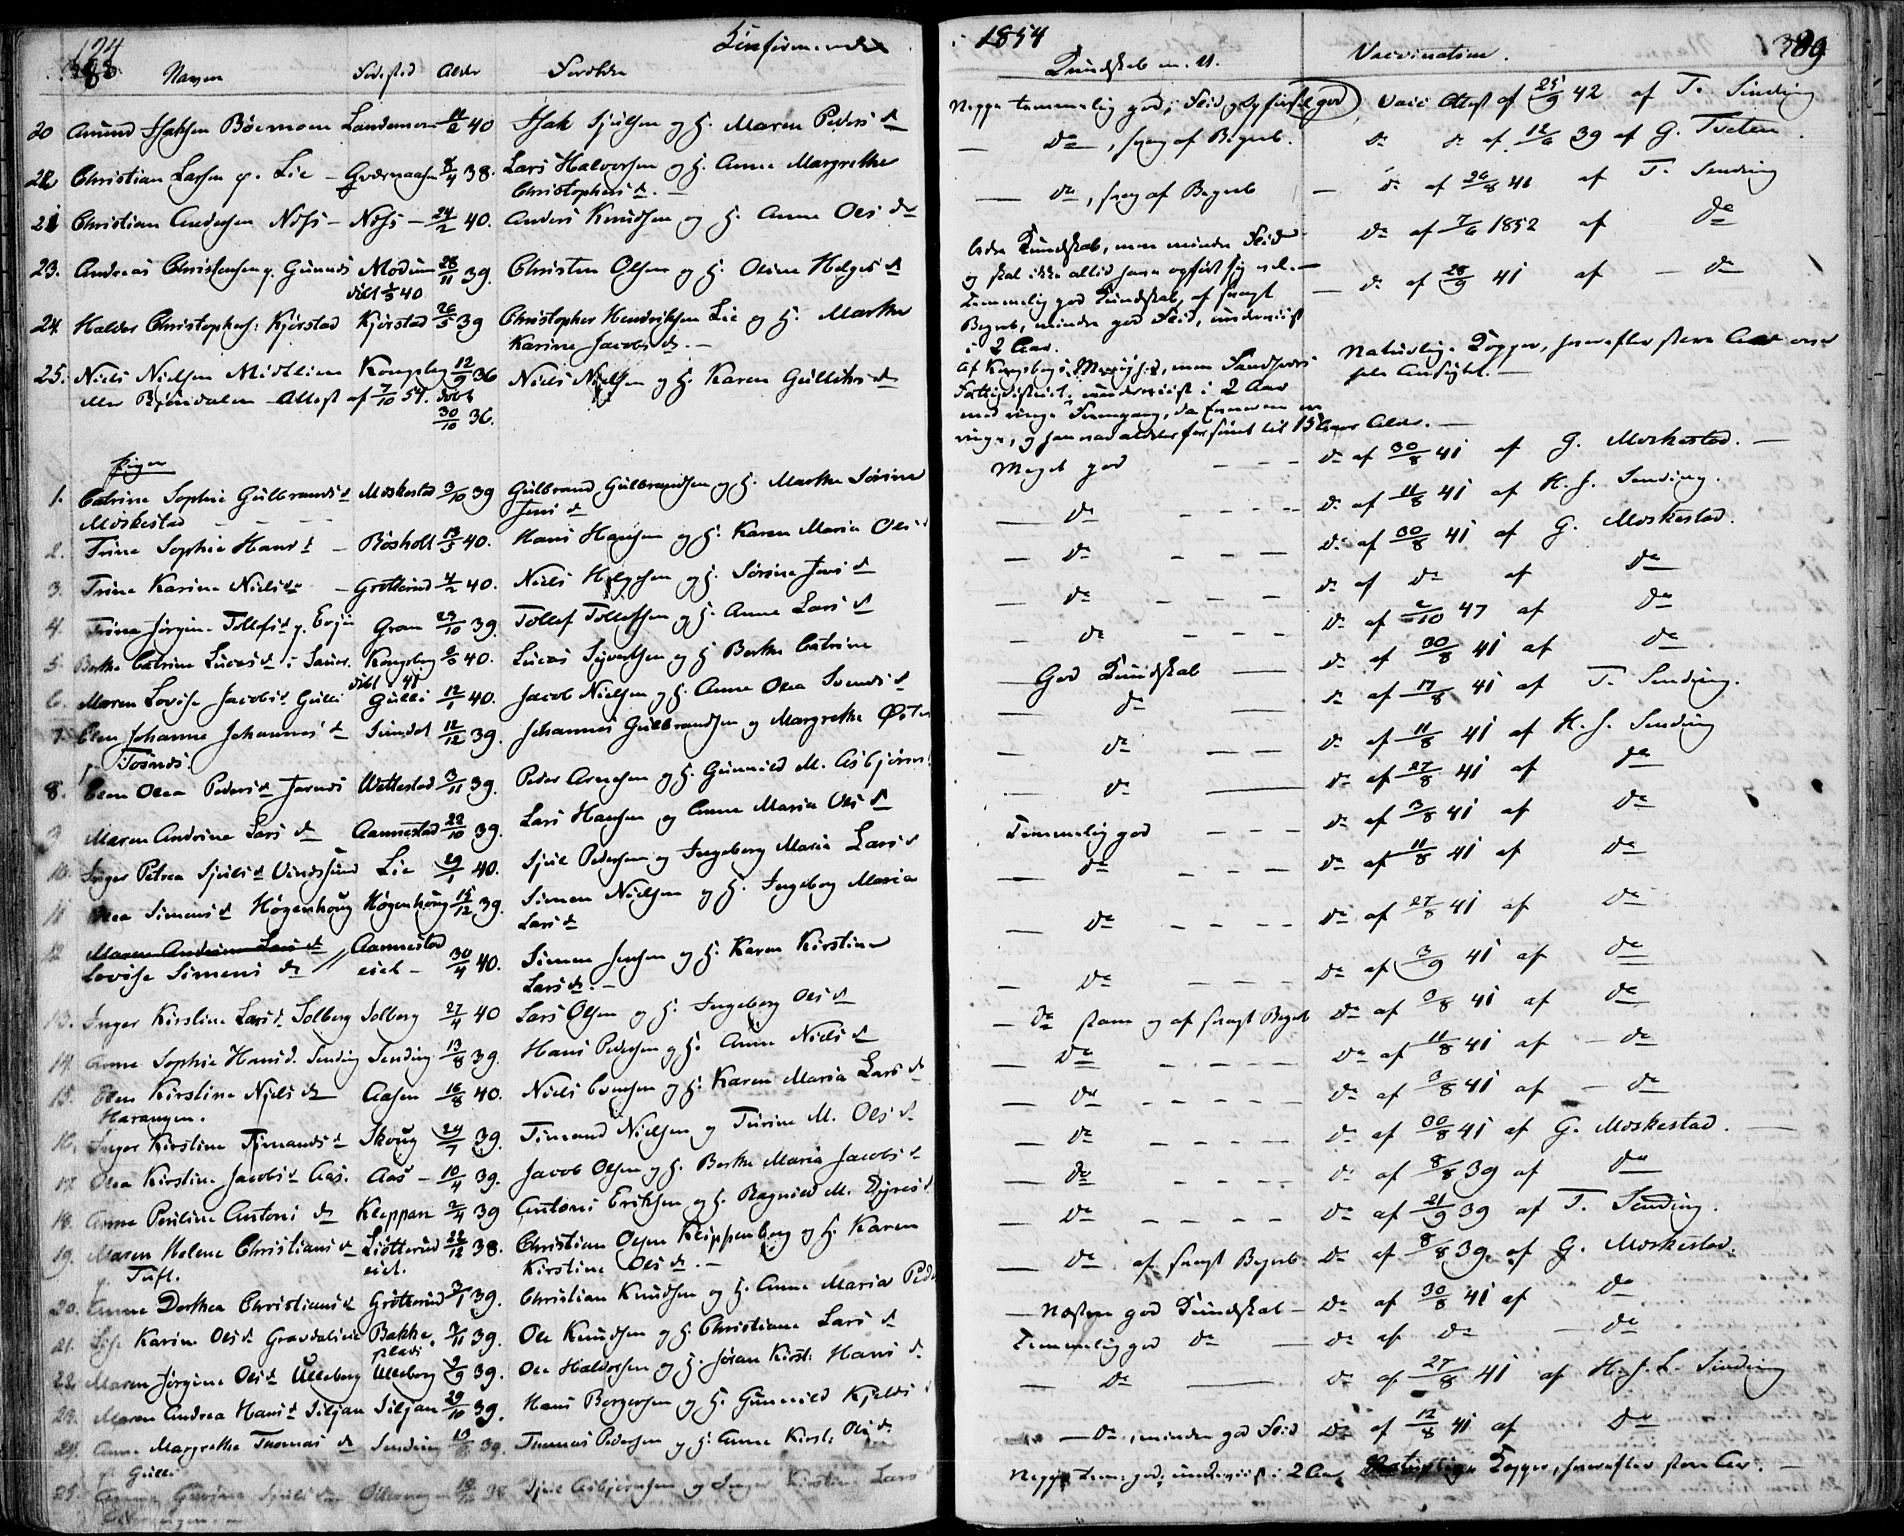 124
388
Confirmerede
Navn Fødested Alder Forældre
20 Amund Isaksen Bøemoen Landemoen 40 Isak Sjulsen og H. Maren Peders d
22 Christian Larsen p. Lie - 8/4 38. Lars Halvorsen og H. Anne Margrethe
Christophers d. -
21 Christian Andersen Næss - Næss - 24/2 40. Anders Knudsen og H. Anne Ols dr
23. Andreas Christensen p. Modum 28/11 39. Christen Olsen og H. Oline Helges d
døbt 1/3 40
24. Halvor Christophers: Kjørstad Kjørstad 26/5 39 Christopher Hendriksen Lie og H. Marthe
Karine Jacobs dr. -
25. Niels Nielsen Midtlien Kongsberg 12/9 36 Niels Nielsen og H. Karen Gulliks d
eller Bjørndalen - Attest af 7/10 54. døbt
30/10 36.
Piger
1. Catrine Sophie Gulbrands d Moskestad 3/10 39 Gulbrand Gulbrandsen og H. Marthe Sørine
Moskestad - - - Jens d
2. Trine Sophie Hans d - Røsholt 13/5 40. Hans Hansen og H. Karen Maria Ols d
3. Trine Karine Niels dr - Grøtterud 4/2 40. Niels Helgesen og H. Sørine Jens d
4. Trine Jørgine Tollefs d p. Gran 23/10 39. Tollef Tollefsen og H. Anne Lars d
5. Berthe Catrine Lucas d i Kongsberg 40. Lucas Syvertsen og H. Berthe Catrine
døbt 41
6. Maren Lovise Jacobs d Gulli Gulli 12/1 40. Jacob Nielsen og H. Anne Olea Svends d
7. Elen Johanne Johannes d Sundet 12/12 39. Johannes Gulbrandsen og Margrethe
8. Elen Olea Peders d Wettestad 3/11 39. Peder Arnesen og H. Gunnild M. Asbjørns
9 Maren Andrine Lars d Aannestad 23/10 39. Lars Hansen og Anne Maria Ols d
10. Inger Petrea Sjuls d Lie 29/1 40. Sjul Pedersen og Ingeborg Maria Lars d
11 Olea Simens d Høgenhoug Høgenhoug 15/12 39. Simen Nielsen og H. Ingeborg Maria
Lars d
12 Maren Andrine Lars d Aannestad
Lovise Simens dr eiet - 30/4 40. Simen Jensen og H. Karen Kirstine
Lars d. -
13. Inger Kirstine Lars d. Solberg Solberg 27/4 40 Lars Olsen og H. Ingeborg Ols d
14. Anne Sophie Hans d. Sending Sending 13/8 39. Hans Pedersen og H. Anne Niels d
15. Elen Kirstine Niels dr Aasen 16/8 40. Niels Evensen og H. Karen Maria Lars d
Harangen.
16. Inger Kirstine Timands d Skoug 24/7 39. Timand Nielsen og Turine M. Ols d
17. Olea Kirstine Jacobs d Aas. Aas - 10/4 39. Jacob Olsen og H. Berthe Maria Jacobs d
18. Anne Pauline Antoni dr Kleppan 2/4 39 Antoni Eriksen og H. Ragnild M.
19. Maren Helene Christians d Liøtterud 22/12 38. Christian Olsen Kleppenberg og H. Karen
Tuft. eiet. Kirstine Ols d. -
20. Anne Dorthea Christians d Grøtterud 3/1 39. Christian Knudsen og H. Anne Maria Peders
21. Lise Karine Ols d Gravdalseie Bakke 7/11 39. Ole Knudsen og H. Christiane Lars d
plads
22. Maren Jørgine Ols d Ulleberg Ulleberg 2/9 39. Ole Halvorsen og H. Jøran Kirst. Hans d.
23. Maren Andrea Hans d Siljan Siljan 29/10 39. Hans Borgersen og H. Gunnild Kjelds
24. Anne Margrethe Thomas dr Sending 39. Thomas Pedersen og H. Anne Kirst. Ols d.
Gulli
25. Anne Sjuls d Sjul Asbjørnsen og Inger Kirstine Lars d
1854
389
Kundskab m. V. Vaccination.
Neppe temmelig god; Flid god Vacc. Attest af 25/9 42 af T. Sinding
- do, svag af Begreb. do do af 12/6 39 af G. Tveten.
- do, svag af Begreb - do af 26/8 41 af T. Sending
do af 7/6 1852 af do
Kundskab, men mindre Flid
og skal ikke altid have opført sig vel. - - do af 28/9 41 af - do
Temmelig god Kundskab, af svagt
Begreb, mindre god Flid, underviist
i 2 Aar.
Naturlige Kopper, hvorefter store Aar over
hele Ansigtet. -
underviist i 2 Aar
med ringe Fremgang, da
ringe, og han var aldeles forsømt til 15 Aars Alder. -
Meget god - - - do af 30/8 41 af G. Moskestad. -
- do - - - - do af 11/8 41 af H. J. Sending.
- do - - - do af 30/8 41 af G. Moskestad.
- do - - - do af do af do
- do - - - do af 2/10 47 af do
God Kundskab - do af 30/8 41 af do
- do - do af 17/8 41 af T. Sending.
- do - - do af 11/8 41 af H. J. Sending
- do - do af 27/8 41 af do
Temmelig god - - - do af 3/8 41 af do
- do - - - do af 11/8 41 af do
- do - - - - do af 27/8 41 af do
- do - - - do af 3/9 41 af do
- do og af svagt Begreb do af 3/8 41 af do
- do - - - - do af 11/8 41 af - do
- do - - - - - do af 3/8 41 af - do
- do - - - - do af 30/8 41 af G. Moskestad. -
- do - - - - do af 8/8 39 af do
- do - - - - do af 21/9 39 af T. Sending.
- do af svagt Begreb do af 8/8 39 af G. Moskestad.
- Næsten god Kundskab - do af 30/8 41 af do
Temmelig god do - do af do - do
- do - do af 27/8 41 af H. J. L. Sinding
- do, mindre god Flid do af 12/8 41 af do
Neppe tem. god, underviist i 2 Aar Naturlige Kopper, hvorefter store Ar. -